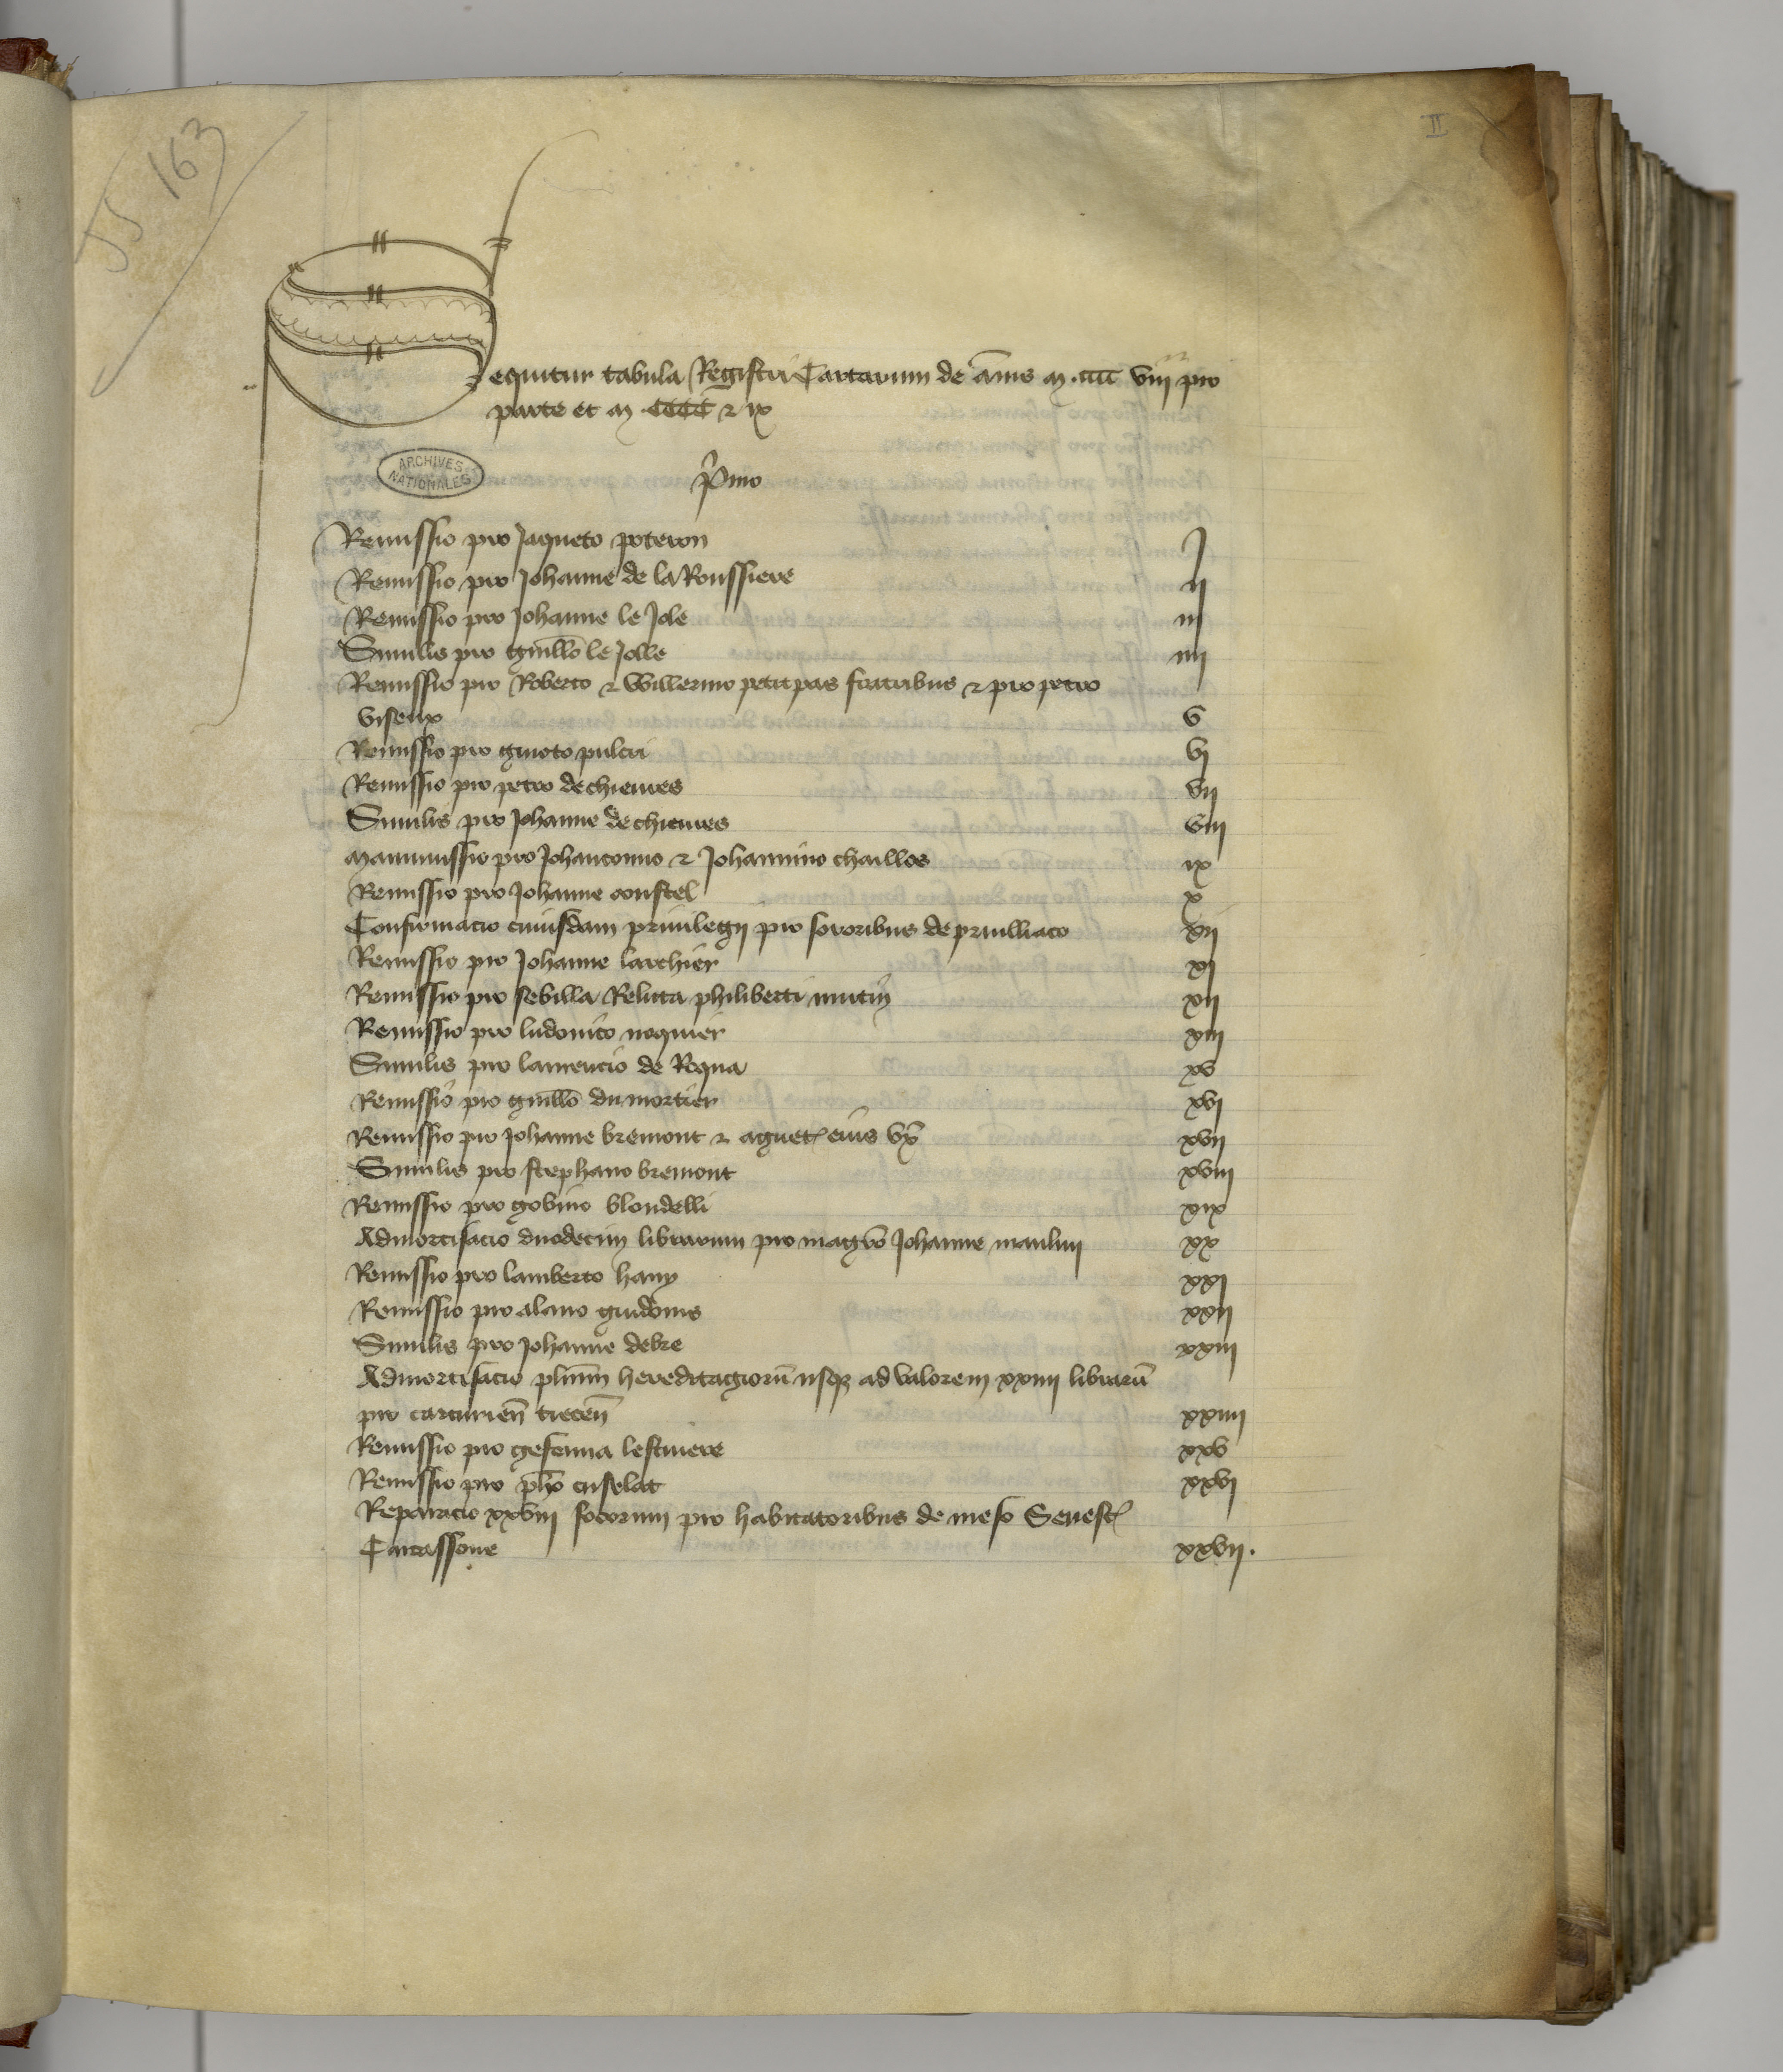 JJ 163
II
Sequitur tabula Registri Cartarum de ānis m. iiii^c viii pro
parte et m CCCC & ix
ARCHIVES NATIONALES
P̾mo
Remissio pro Jaqueto poteron j
Remissio pro Johanne de la Roussiere ij
Remissio pro Johanne le Jole iij
Similis pro guillō le Jolle iiij
Remissio pro Roberto & Willermo petitpas fratribus & pro petro
viseux v
Remissio pro guioto pulcri vj
Remissio pro petro de chienres vij
Similis pro Johanne de chienres viij
Manumissio pro Johantonno & Johannino chaillos ix
Remissio pro Johanne coustel x
Confirmacio cuiusdam priuilegij pro sororibus de priulliaco xij
Remissio pro Johanne larchier xj
Remissio pro sebilla Relicta philiberti mutin xij
Remissio pro ludouico noquier xiij
Similis pro laurencio de Roqua xv
Remissio pro guillō du mortier xvj
Remissio pro Johanne bremont & agnet eius vx̄ xvij
Similis pro stephano bremont xviij
Remissio pro gobino blondelli xix
Admortisacio duodecim librarum pro magr̄o Johanne maulin xx
Remissio pro lamberto hany xxj
Remissio pro alano guidonis xxij
Similis pro Johanne debre xxiij
Admortisacio plurīm hereditagiorū usq3 ad valorem xxiiij librarū
pro carturien̄ trecen̄ xxiiij
Remissio pro gesenna lescuiere xxv
Remissio pro ph̄o cuselat xxvj
Reparacio xxviij focorum pro habitatoribus de meso Senest
Carcassone xxvij.